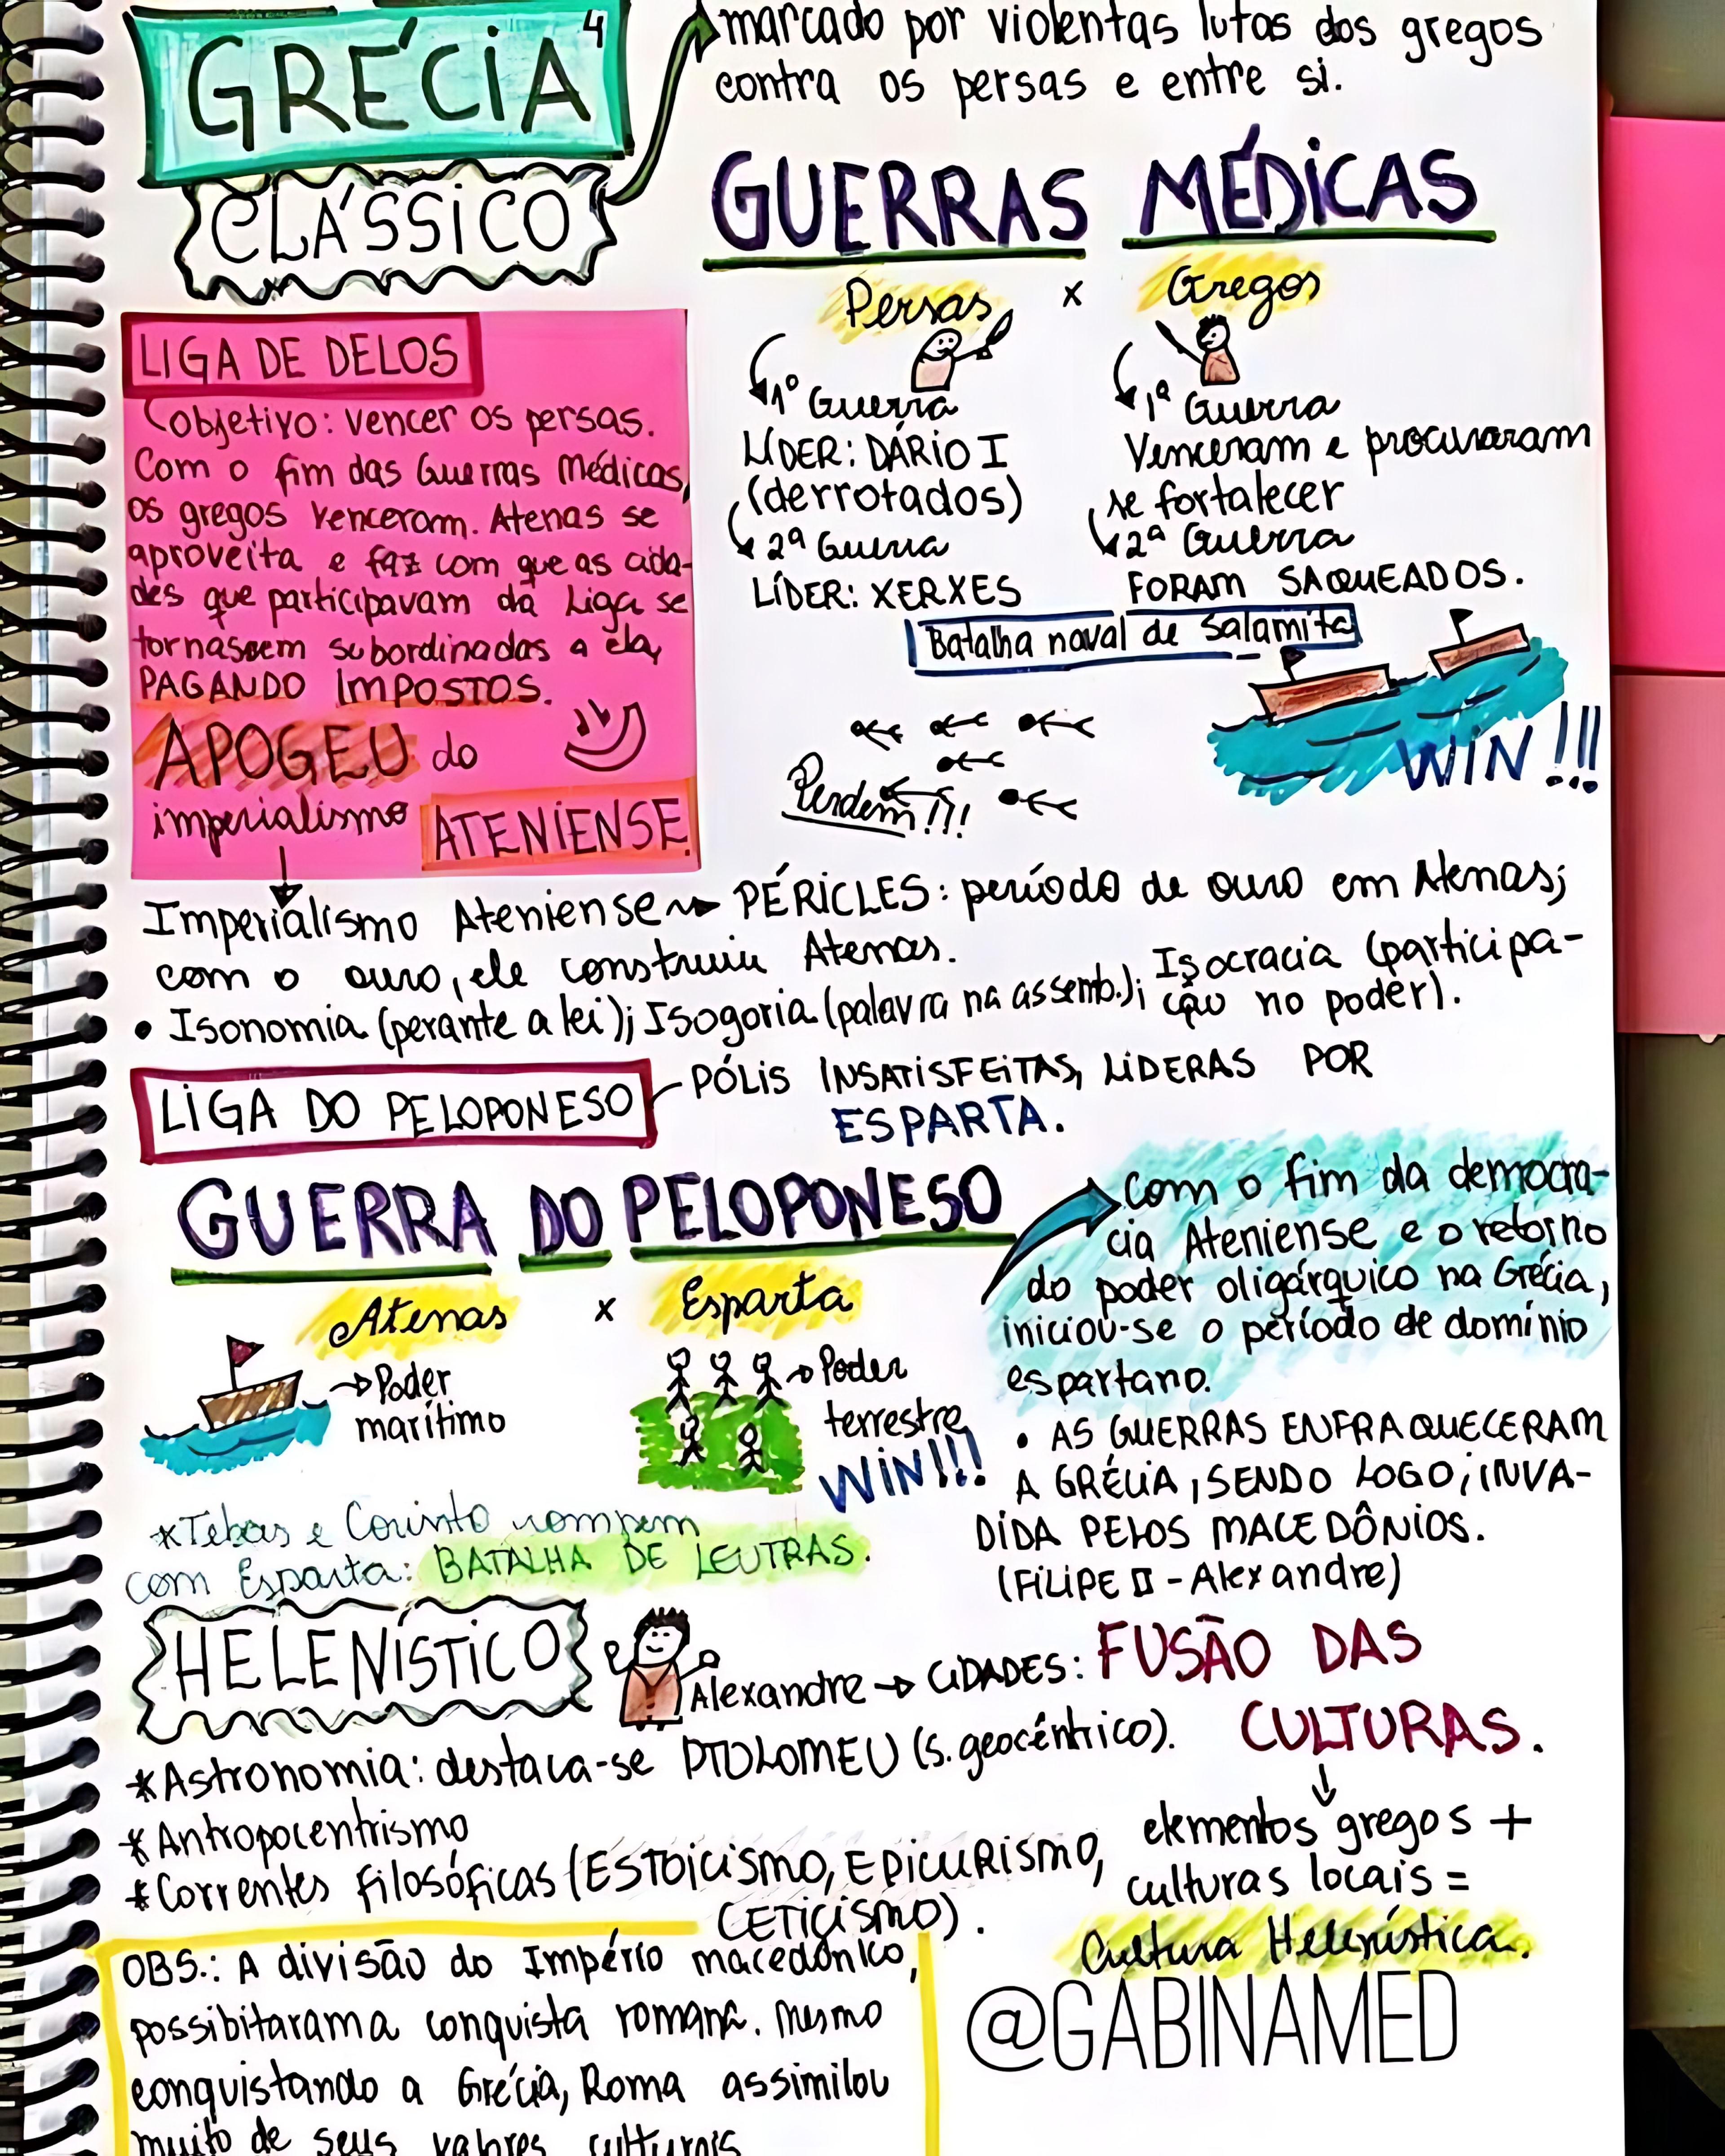 GRÉCIA 4
CLÁSSICO
marcado por violentas lutas dos gregos
contra os persas e entre si.
GUERRAS MÉDICAS
Persas x Gregos
1º Guerra
LÍDER: DÁRIO I
(derrotados)
2ª Guerra
LÍDER: XERXES
1ª Guerra
Venceram e procuraram
se fortalecer
2ª Guerra
FORAM SAQUEADOS.
Batalha naval de Salamita
WIN!!!
Perdem!!!
LIGA DE DELOS
objetivo: vencer os persas.
Com o fim das Guerras Médicas,
os gregos venceram. Atenas se
aproveita e faz com que as cida-
des que participavam da Liga se
tornassem subordinadas a ela,
PAGANDO IMPOSTOS.
APOGEU do
imperialismo ATENIENSE.
Imperialismo Ateniense PÉRICLES: período de ouro em Atenas;
com o ouro, ele construiu Atenas.
• Isonomia (perante a lei); Isogoria (palavra na assemb.); Isocracia (participa-
ção no poder).
LIGA DO PELOPONESO PÓLIS INSATISFEITAS, LIDERAS POR
ESPARTA.
GUERRA DO PELOPONESO
Atenas x Esparta
→ Poder
marítimo
→ Poder
terrestre
WIN!!!
*Tebas e Corinto rompem
com Esparta: BATALHA DE LEUTRAS.
com o fim da democra-
cia Ateniense e o retorno
do poder oligárquico na Grécia,
iniciou-se o período de domínio
espartano.
• AS GUERRAS ENFRAQUECERAM
A GRÉCIA, SENDO LOGO, INVA-
DIDA PELOS MACEDÔNIOS.
(FILIPE II - Alexandre)
HELENÍSTICO
Alexandre → CIDADES: FUSÃO DAS
CULTURAS.
*Astronomia: destaca-se PTOLOMEU (s. geocêntrico).
*Antropocentrismo
*Correntes filosóficas (ESTOICISMO, EPICURISMO,
CETICISMO).
elementos gregos +
culturas locais =
Cultura Helenística.
OBS.: A divisão do Império macedônico,
possibitaram a conquista romana. Mesmo
conquistando a Grécia, Roma assimilou
muito de seus valores culturais
@GABINAMED